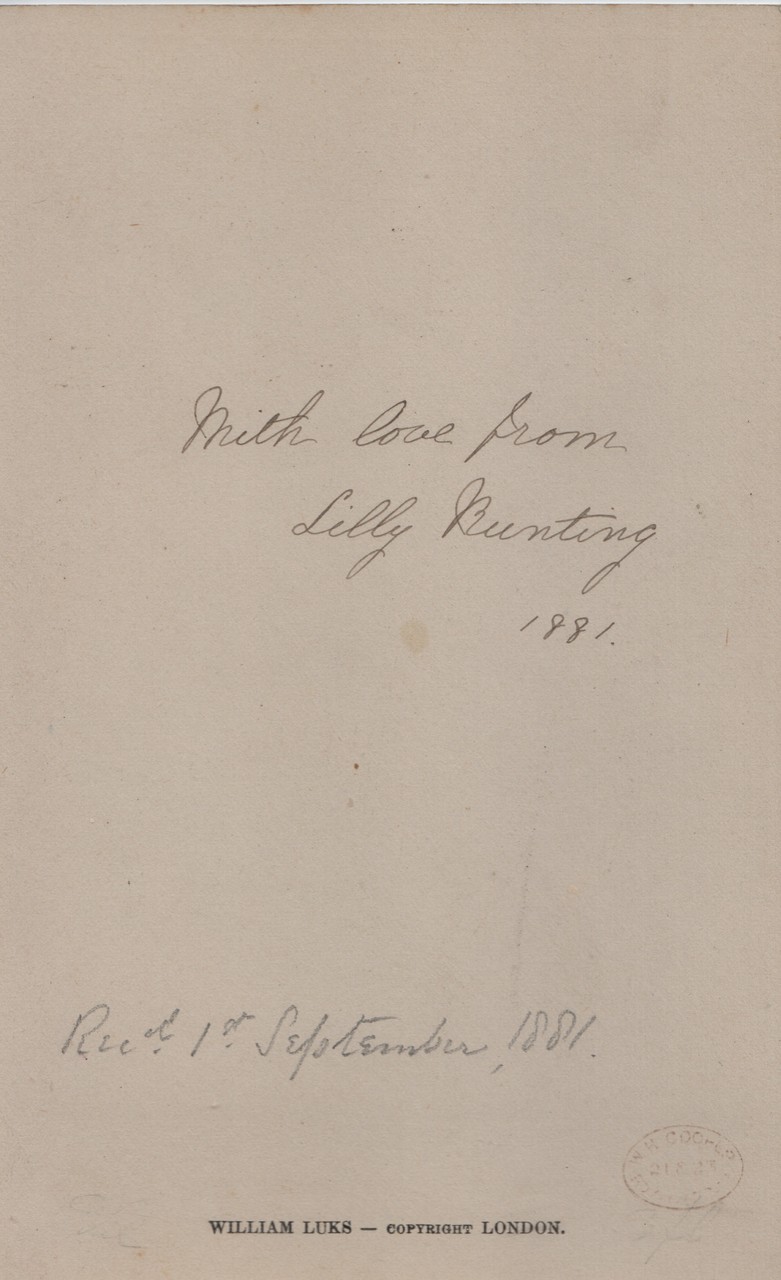 With love from
Lilly Bunting
1881.
Recd. 1st September, 1881.
W. H. COOPER
WILLIAM LUKS — COPYRIGHT LONDON.